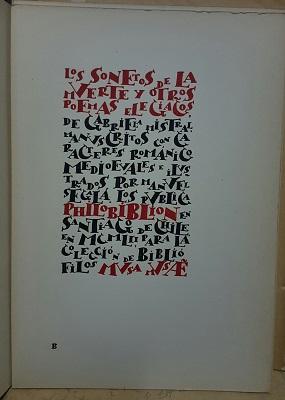 LOS SONETOS DE LA
MVERTE Y OTROS
POEMAS ELEGIACOS,
DE GABRIELA MISTRAL,
MANVSCRITOS CON CA
RACTERES ROMANICO
MEDIOEVALES E ILVS
TRADOS POR MANVEL
SEGALA LOS PVBLICA
PHILOBIBLION EN
SANTIAGO DE CHILE
EN MCMLII PARA LA
COLECCION DE BIBLIO
FILOS MVSA MVSÆ
B